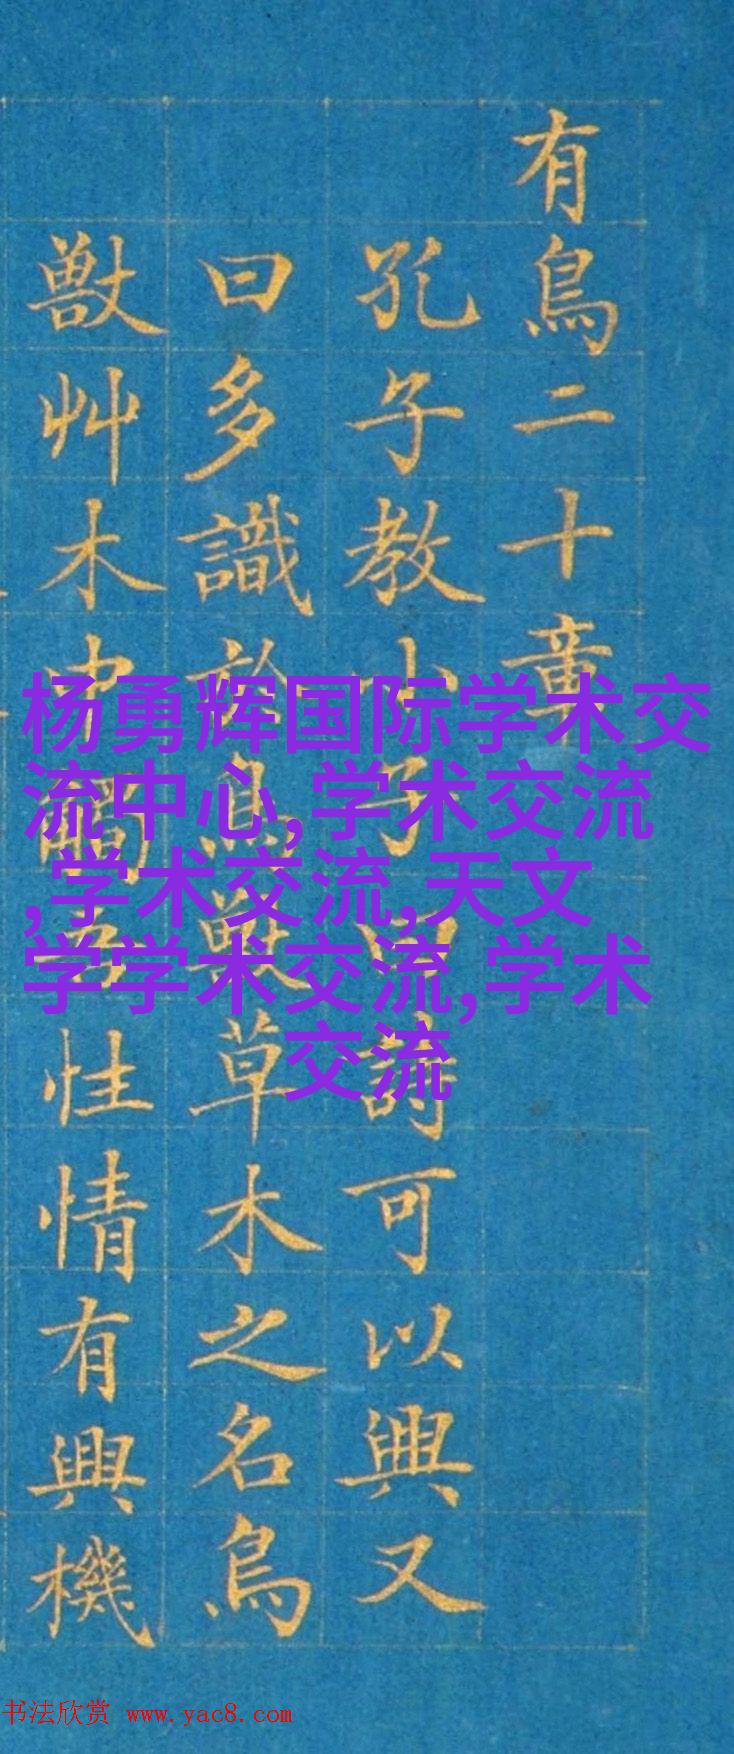 有鳥二十章
孔子教小子曰詩可以興又
曰多識於鳥獸草木之名鳥
獸艸木中觸吾性情有興機
杨勇辉国际学术交
流中心,学术交流
,学术交流,天文
学学术交流,学术
交流
书法欣赏 www.yac8.com